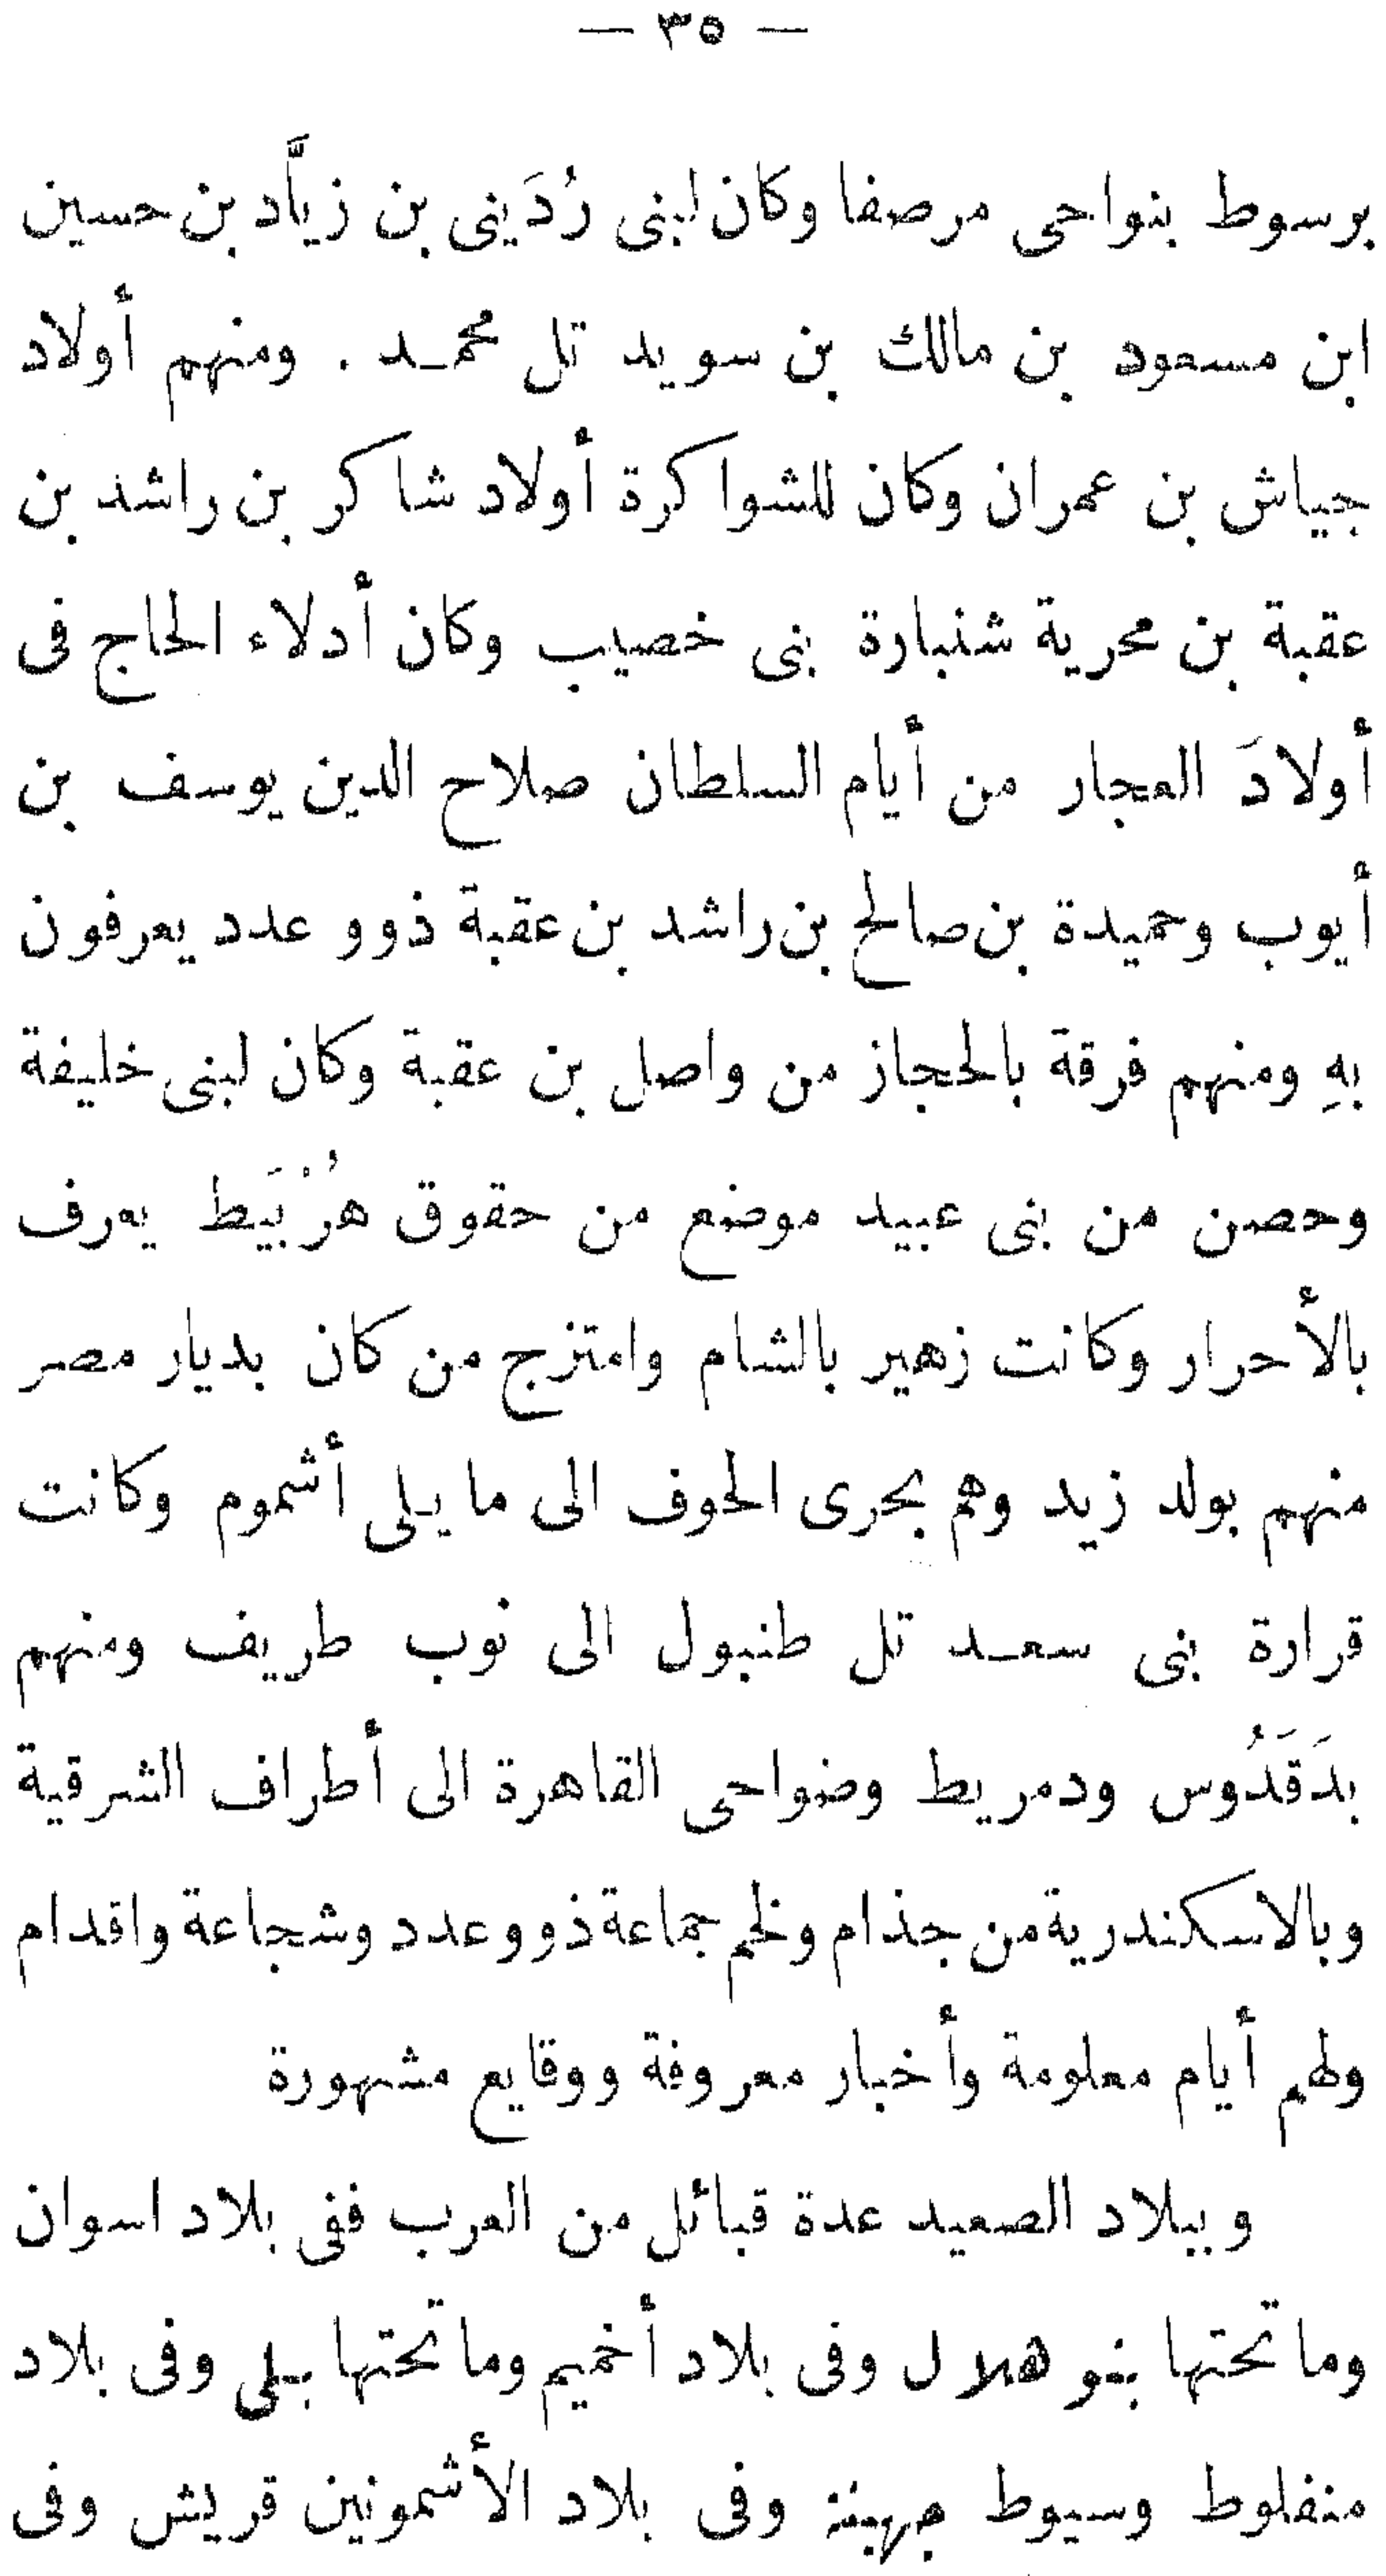 — ٣٥ —
برسوط بنواحى مرصفا وكان لبنى رُدَينى بن زيَّاد بن حسين
ابن مسعود بن مالك بن سويد تل محمـد . ومنهم أولاد
جياش بن عمران وكان للشواكرة أولاد شاكر بن راشد بن
عقبة بن محرية شنبارة بنى خصيب وكان أدلاء الحاج فى
أولادَ العجار من أيام السلطان صلاح الدين يوسف بن
أيوب وحميدة بن صالح بن راشد بن عقبة ذوو عدد يعرفون
بهِ ومنهم فرقة بالحجاز من واصل بن عقبة وكان لبنى خليفة
وحصن من بنى عبيد موضع من حقوق هُرْبَيط يعرف
بالأحرار وكانت زهير بالشام وامتزج من كان بديار مصر
منهم بولد زيد وهم بحرى الحوف الى ما يلى أشموم وكانت
قرارة بنى سعـد تل طنبول الى نوب طريف ومنهم
بدَقَدُوس ودمريط وضواحى القاهرة الى أطراف الشرقية
وبالاسكندرية من جذام ولخم جماعة ذوو عدد وشجاعة واقدام
ولهم أيام معلومة وأخبار معروفة ووقايع مشهورة
وببلاد الصعيد عدة قبائل من العرب ففى بلاد اسوان
وما تحتها بنو هلال وفى بلاد أخميم وما تحتها بلى وفى بلاد
منفلوط وسيوط جهينة وفى بلاد الأشمونين قريش وفى